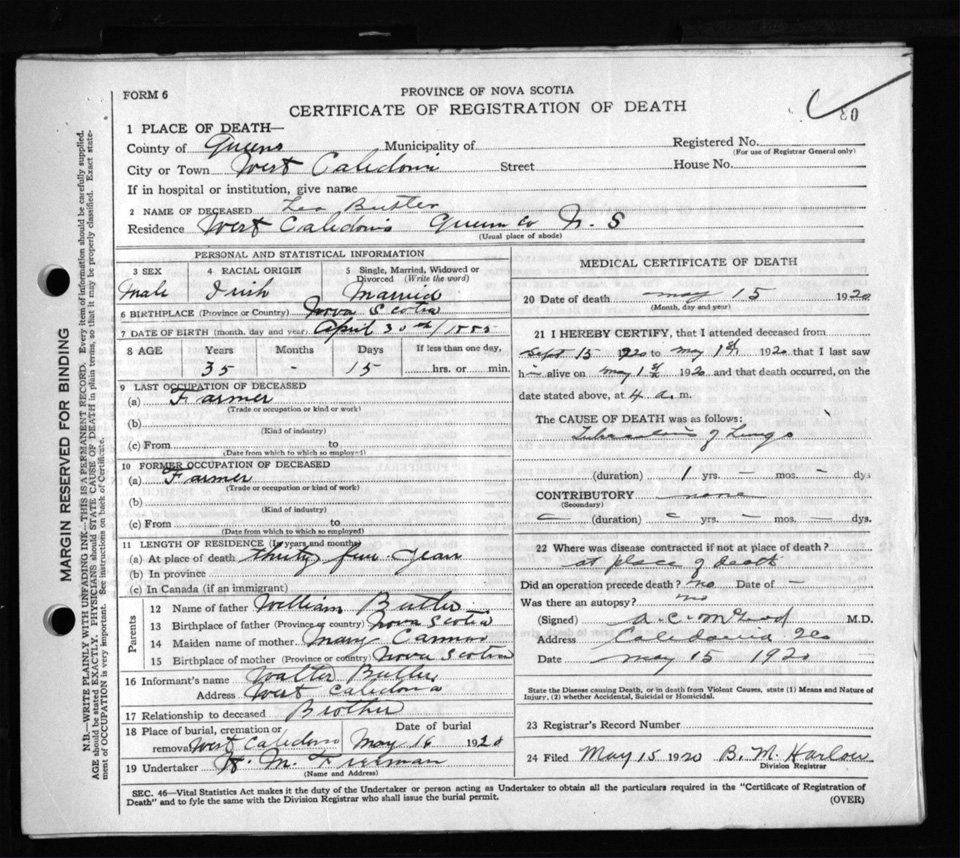 FORM 6
PROVINCE OF NOVA SCOTIA
CERTIFICATE OF REGISTRATION OF DEATH
80
1 PLACE OF DEATH—
County of Queens Municipality of
Registered No.
(For use of Registrar General only)
City or Town West Caledonia Street House No.
If in hospital or institution, give name
2 NAME OF DECEASED Leo Butler
Residence West Caledonia Queens Co N. S
(Usual place of abode)
PERSONAL AND STATISTICAL INFORMATION
3 SEX Male
4 RACIAL ORIGIN Irish
5 Single, Married, Widowed or Divorced (Write the word) Married
6 BIRTHPLACE (Province or Country) Nova Scotia
7 DATE OF BIRTH (month, day and year) April 30th/1885
8 AGE Years Months Days If less than one day,
35 - 15 hrs. or min.
9 LAST OCCUPATION OF DECEASED
(a) Farmer
(Trade or occupation or kind or work)
(b)
(Kind of industry)
(c) From to
(Date from which to which so employed)
10 FORMER OCCUPATION OF DECEASED
(a) Farmer
(Trade or occupation or kind or work)
(b)
(Kind of industry)
(c) From to
(Date from which to which so employed)
11 LENGTH OF RESIDENCE (In years and months)
(a) At place of death thirty five years
(b) In province
(c) In Canada (if an immigrant)
Parents
12 Name of father William Butler
13 Birthplace of father (Province or country) Nova Scotia
14 Maiden name of mother Mary Cannon
15 Birthplace of mother (Province or country) Nova Scotia
16 Informant's name Walter Butler
Address West Caledonia
17 Relationship to deceased Brother
18 Place of burial, cremation or removal West Caledonia Date of burial May 16 1920
19 Undertaker M. Freeman
(Name and Address)
MEDICAL CERTIFICATE OF DEATH
20 Date of death May 15 1920
(Month, day and year)
21 I HEREBY CERTIFY, that I attended deceased from
Sept 15 1920 to May 1st, 1920 that I last saw
him alive on May 1st 1920 and that death occurred, on the
date stated above, at 4 a. m.
The CAUSE OF DEATH was as follows:
Tuberculosis of Lungs
(duration) 1 yrs. — mos. — dys
CONTRIBUTORY none
(Secondary)
(duration) yrs. — mos. — dys.
22 Where was disease contracted if not at place of death?
at place of death
Did an operation precede death? no Date of —
Was there an autopsy? no
(Signed) M.D.
Address Caledonia
Date May 15 1920
State the Disease causing Death, or in death from Violent Causes, state (1) Means and Nature of
Injury, (2) whether Accidental, Suicidal or Homicidal.
23 Registrar's Record Number
24 Filed May 15 1920 B. M. Harlow
Division Registrar
SEC. 46—Vital Statistics Act makes it the duty of the Undertaker or person acting as Undertaker to obtain all the particulars required in the "Certificate of Registration of
Death" and to fyle the same with the Division Registrar who shall issue the burial permit.
(OVER)
MARGIN RESERVED FOR BINDING
N.B.—WRITE PLAINLY WITH UNFADING INK—THIS IS A PERMANENT RECORD. Every item of information should be carefully supplied.
AGE should be stated EXACTLY. PHYSICIANS should STATE CAUSE OF DEATH in plain terms, so that it may be properly classified. Exact statement of OCCUPATION is very important. See instructions on back of Certificate.